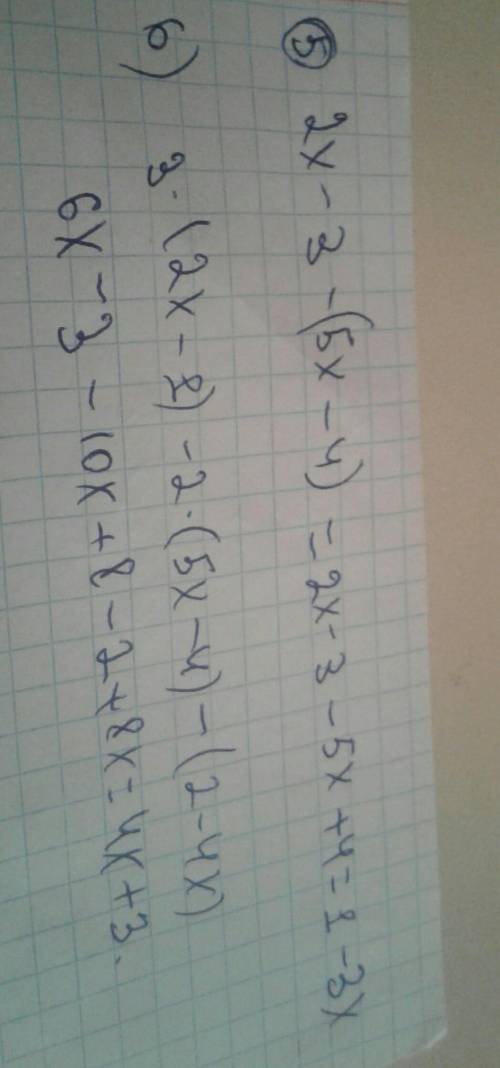 ⑤ 2x - 3 - (5x - 4) = 2x - 3 - 5x + 4 = 1 - 3x
б) 3 · (2x - 1) - 2 · (5x - 4) - (2 - 4x)
6x - 3 - 10x + 8 - 2 + 8x = 4x + 3.